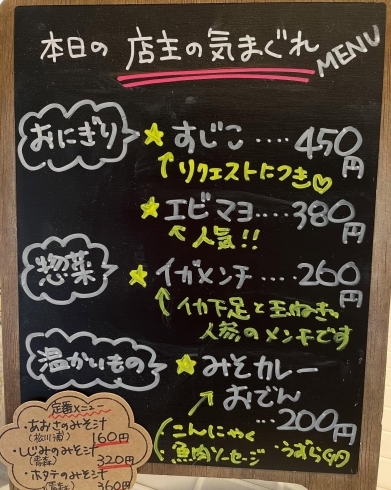 本日の 店主の気まぐれ MENU
おにぎり
★すじこ‥‥450円
↑リクエストにつき♡
★エビマヨ‥‥380円
↖人気!!
惣菜
★イガメンチ‥‥260円
↑イカ下足と玉ねぎ、
人参のメンチです
温かいもの
★みそカレー
おでん
‥‥200円
こんにゃく
魚肉ソーセージ・うずら
定番メニュー
・あおさのみそ汁
(松川浦) 160円
・しじみのみそ汁
(青森) 320円
・ホタテのみそ汁
(青森) 360円